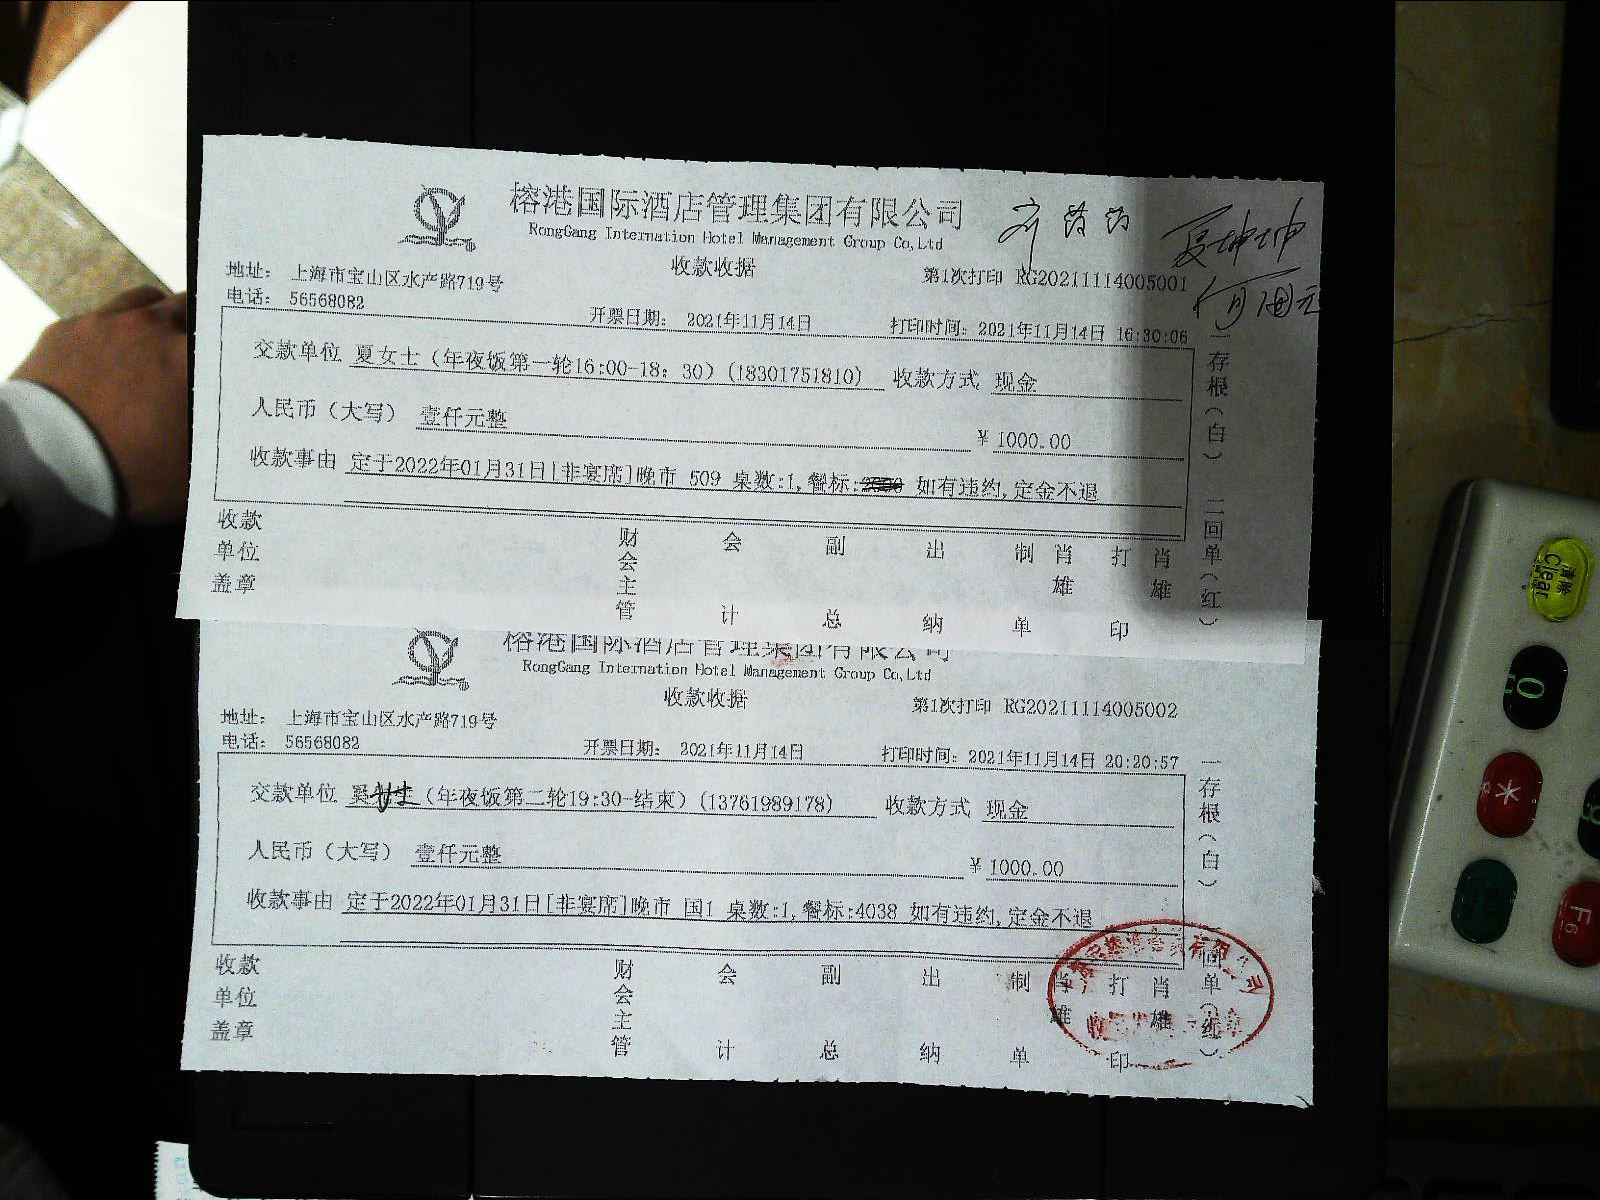 榕港国际酒店管理集团有限公司
RongGang Internation Hotel Management Group Co,Ltd
夏坤坤
收款收据
第1次打印 RG20211114005001
地址： 上海市宝山区水产路719号
电话： 56568082
开票日期： 2021年11月14日
打印时间：2021年11月14日 16:30:06
交款单位 夏女士（年夜饭第一轮16:00-18：30）(18301751810) 收款方式 现金
人民币（大写） 壹仟元整 ￥1000.00
收款事由 定于2022年01月31日[非宴席]晚市 509 桌数:1,餐标: 如有违约,定金不退
一存根（白） 二回单（红）
收款单位盖章
财会主管 会计 副总 出纳 制单 肖雄 打印 肖雄
榕港国际酒店管理集团有限公司
RongGang Internation Hotel Management Group Co,Ltd
收款收据
第1次打印 RG20211114005002
地址： 上海市宝山区水产路719号
电话： 56568082
开票日期： 2021年11月14日
打印时间：2021年11月14日 20:20:57
交款单位 （年夜饭第二轮19:30-结束）(13761989178) 收款方式 现金
人民币（大写） 壹仟元整 ￥1000.00
收款事由 定于2022年01月31日[非宴席]晚市 国1 桌数:1,餐标:4038 如有违约,定金不退
一存根（白） 回单（红）
收款单位盖章
财会主管 会计 副总 出纳 制单 肖雄 打印 肖雄
清除
Clear
0
*
F6